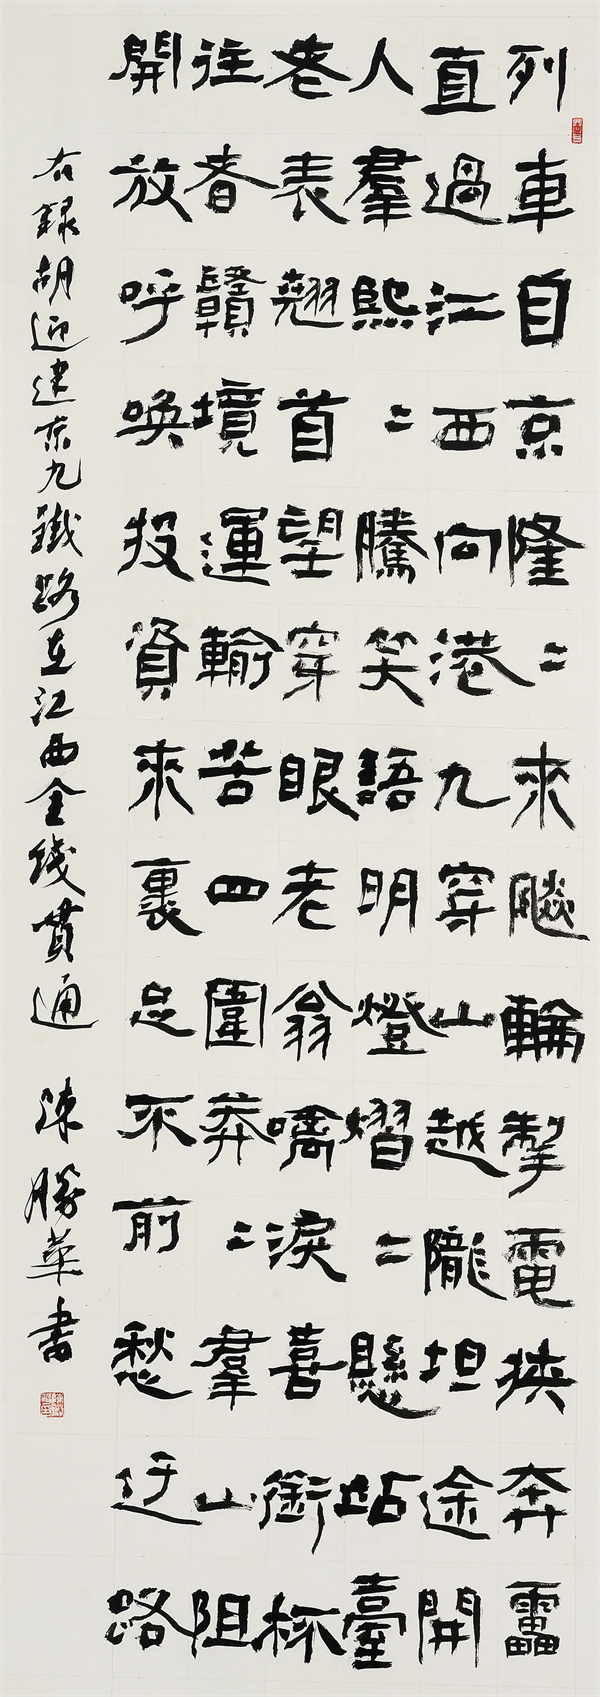 列車自京隆〻來飈輪掣電挾奔靁
直過江西向港九穿山越隴坦途開
人羣熙〻騰笑語明燈熠〻懸站臺
老表翹首望穿眼老翁噙淚喜銜杯
往昔贛境運輸苦四圍莽〻羣山阻
開放呼喚投資來裹足不前愁迂路
右録胡迎建京九鐵路在江西全綫貫通 陳勝華書